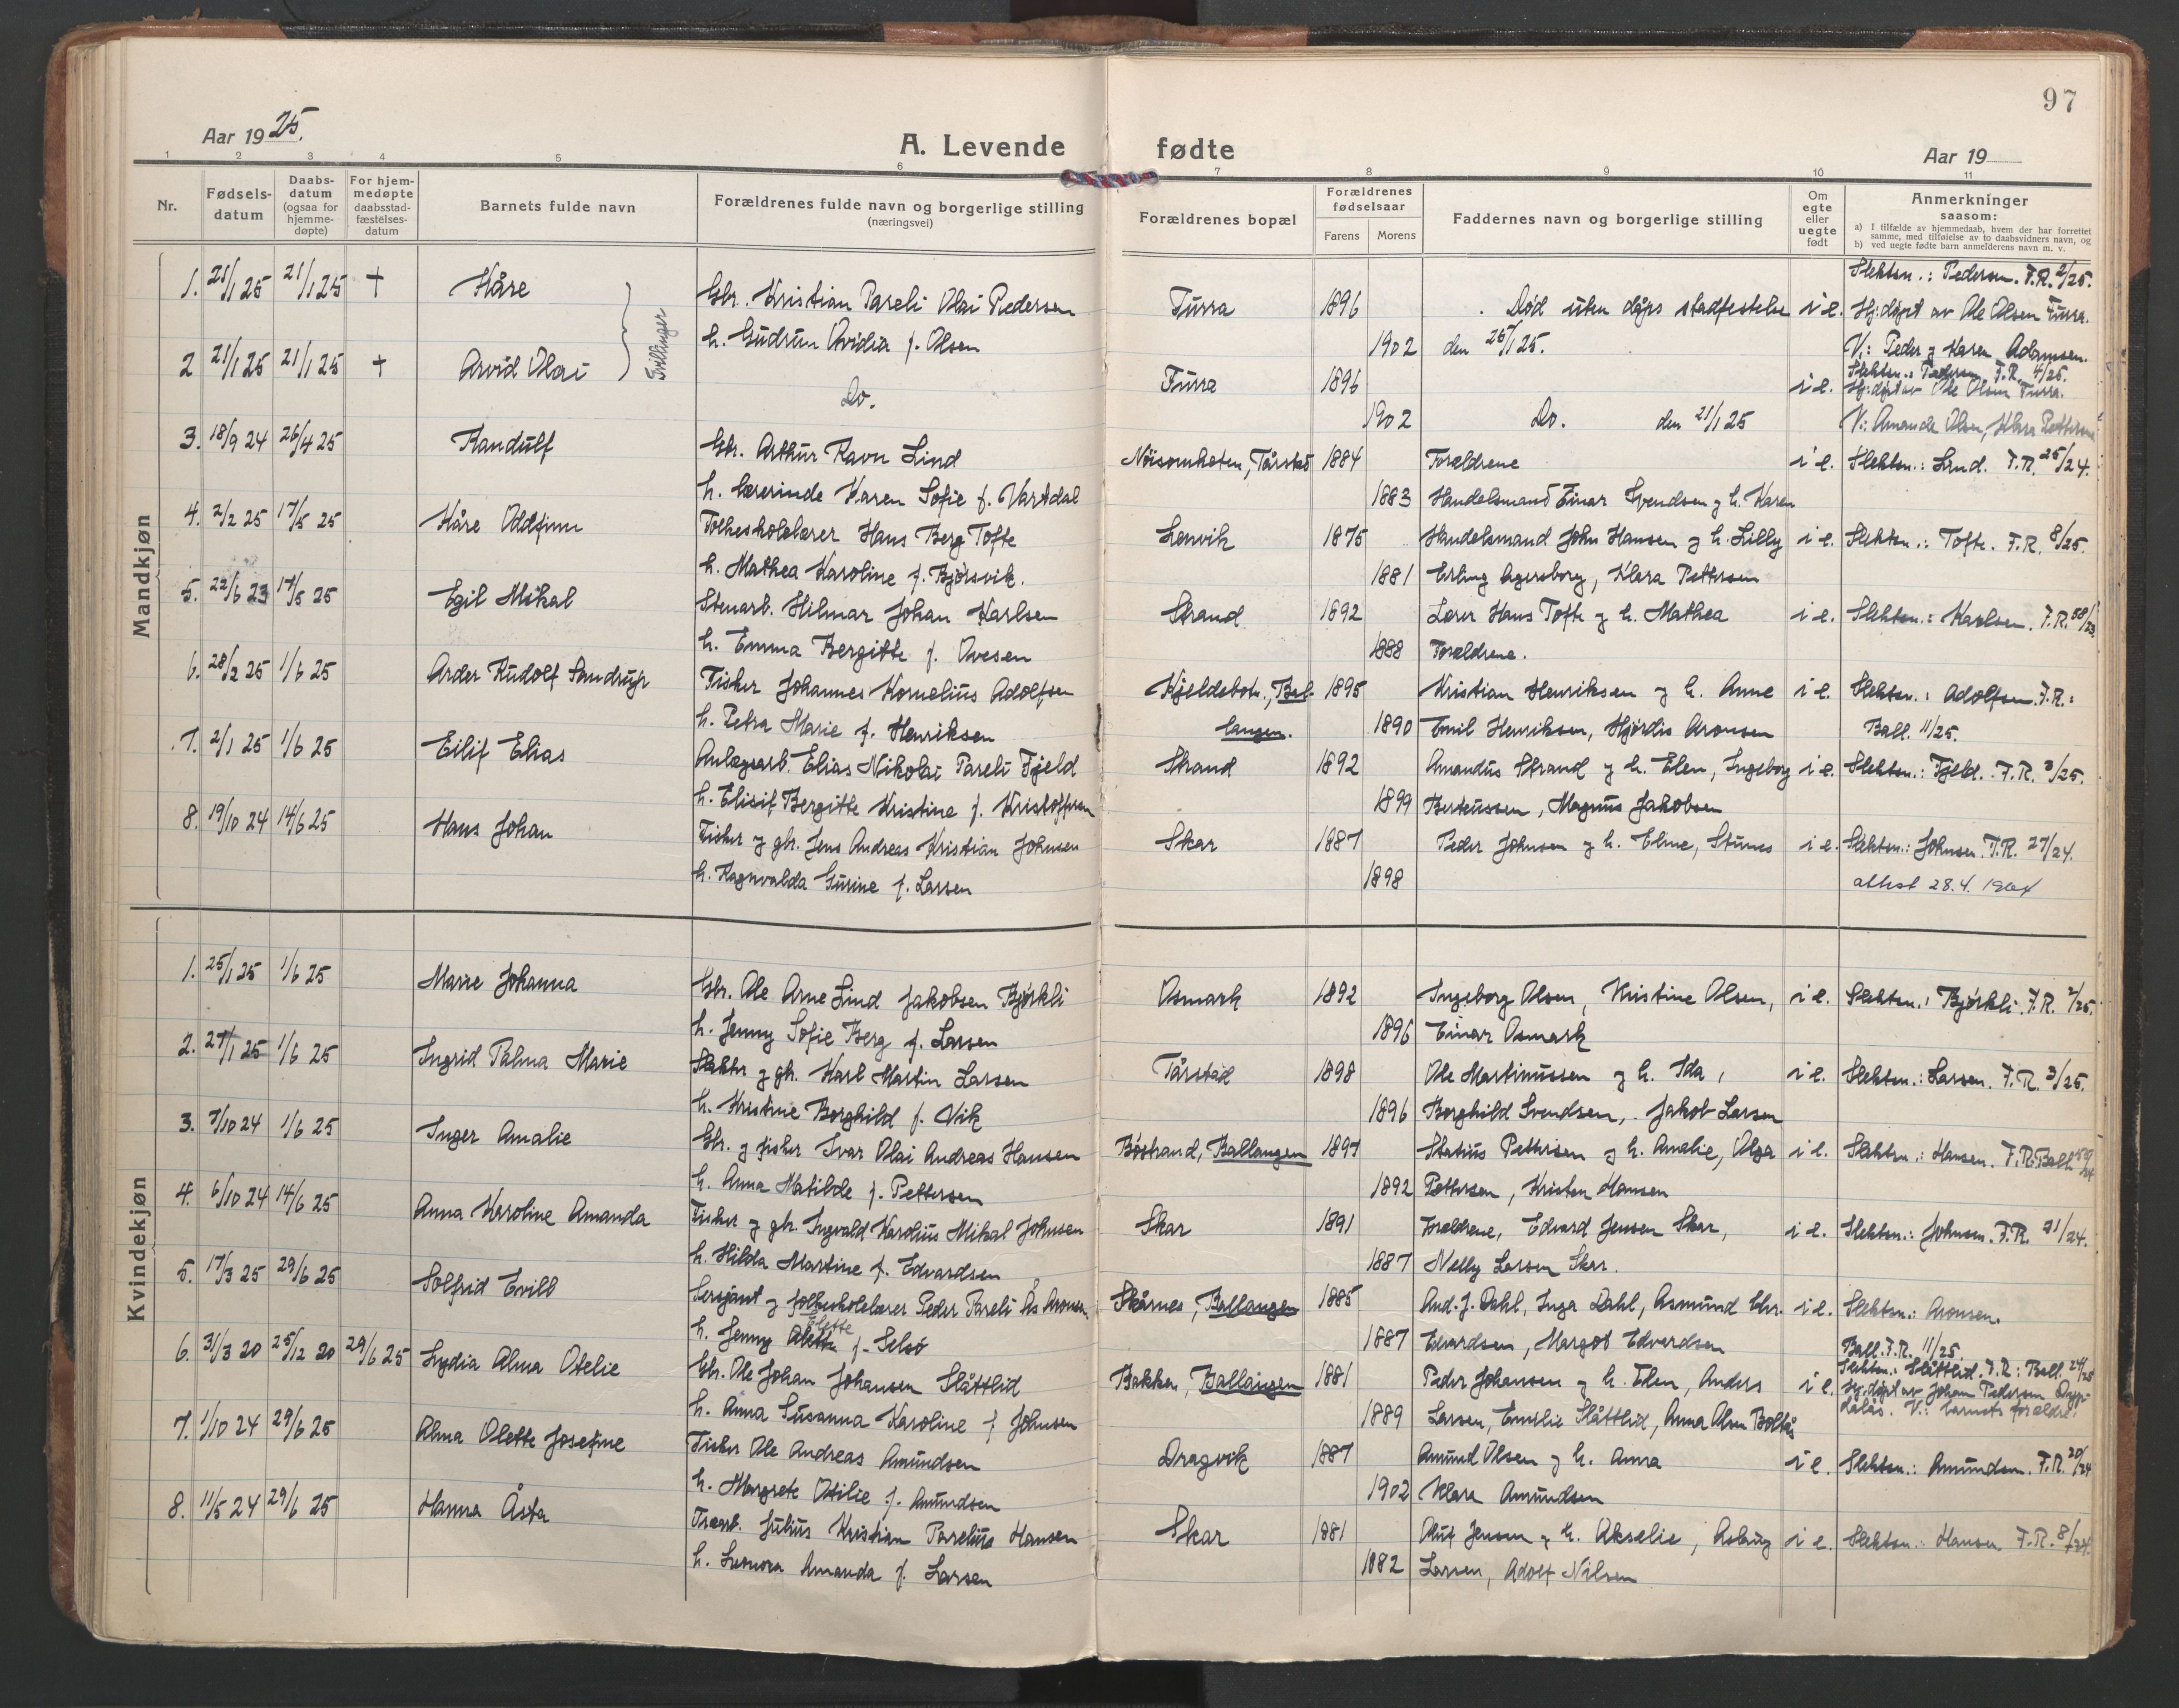 97
Aar 1925.
A. Levende fødte
Aar 19
1 2 3 4 5 6 7 8 9 10 11
Nr.
Fødsels-datum
Daabs-datum (ogsaa for hjemme-døpte)
For hjem-medøpte daabsstad-fæstelses-datum
Barnets fulde navn
Forældrenes fulde navn og borgerlige stilling (næringsvei)
Forældrenes bopæl
Forældrenes fødselsaar
Farens Morens
Faddernes navn og borgerlige stilling
Om egte eller uegte født
Anmerkninger saasom:
a) I tilfælde av hjemmedaab, hvem der har forrettet samme, med tilføielse av to daabsvidners navn, og
b) ved uegte fødte barn anmelderens navn m. v.
Mandkjøn
Slektsn.: Pedersen. F.R. 2/25.
1. 21/1 25 21/1 25 + Kåre Gbr. Kristian Pareli Olai Pedersen Furra 1896 . Død uten dåps stadfestelse i e. Hj:døpt av Ole Olsen Furra.
h. Gudrun Ovidia f. Olsen 1902 den 26/1 25. V.: Peder og Karen Adamsen.
Tvillinger
2 21/1 25 21/1 25 + Arvid Olai Do. Furra 1896 i e. Slektsn.: Pedersen F.R. 4/25.
Hj:døpt av Ole Olsen Furra.
1902 Do. den 21/1 25 V.: Amanda Olsen, Klara Pettersen
3. 18/9 24 26/4 25 Randulf Gbr. Arthur Ravn Lind Nöisomheten, Tårstad 1884 Forældrene i e. Slektsn.: Lind. F.R. 25/24.
h. lærerinde Karen Sofie f. Vartdal 1883 Handelsmand Einar Svendsen og h. Karen
4. 2/2 25 17/5 25 Kåre Oddfinn Folkeskolelærer Hans Berg Tofte Lenvik 1875 Handelsmand John Hansen og h. Lilly i e. Slektsn.: Tofte. F.R. 8/25.
h. Mathea Karoline f. Bjørsvik. 1881 Erling Agersborg, Klara Pettersen
5. 22/6 23 17/5 25 Egil Mikal Stenarb. Hilmar Johan Karlsen Strand 1892 Lærer Hans Tofte og h. Mathea i e. Slektsn.: Karlsen. F.R. 58/23.
h. Emma Bergitte f. Ovesen 1888 Forældrene.
6. 28/2 25 1/6 25 Arder Rudolf Sandrup Fisker Johannes Kornelius Adolfsen Kjeldebotn, Bal- 1895 Kristian Henriksen og h. Anne i e. Slektsn.: Adolfsen. F.R.:
h. Petra Marie f. Henriksen langen. 1890 Emil Henriksen, Hjørdis Aronsen Ball. 11/25.
7. 2/1 25 1/6 25 Eilif Elias Anlægsarb. Elias Nikolai Pareli Fjeld Strand 1892 Amandus Strand og h. Elen, Ingeborg i e. Slektsn.: Fjeld. F.R. 3/25.
h. Elisif Bergitte Kristine f. Kristoffersen 1899 Berteussen, Magnus Jakobsen
8. 19/10 24 14/6 25 Hans Johan Fisker og gbr. Jens Andreas Kristian Johnsen Skar 1887 Peder Johnsen og h. Eline, i e. Slektsn.: Johnsen. F.R. 27/24.
h. Ragnvalda Gurine f. Larsen 1898 attest 28.4. 1964
Kvindekjøn
1. 25/1 25 1/6 25 Marie Johanna Gbr. Ole Arne Lind Jakobsen Bjørkli Osmark 1892 Ingeborg Olsen, Kristine Olsen, i e. Slektsn.: Bjørkli. F.R. 2/25.
h. Jenny Sofie Berg f. Larsen 1896 Einar Osmark
2. 27/1 25 1/6 25 Ingrid Palma Marie Slakter og gbr. Karl Martin Larsen Tårstad 1898 Ole Martinussen og h. Ida, i e. Slektsn.: Larsen. F.R. 3/25.
h. Kristine Borghild f. Vik 1896 Borghild Svendsen, Jakob Larsen
3. 7/10 24 1/6 25 Inger Amalie Gbr. og fisker Ivar Olai Andreas Hansen Bøstrand, Ballangen 1897 Statius Pettersen og h. Amalie, Olga i e. Slektsn.: Hansen. F.R. Ball.
h. Anna Matilde f. Pettersen 1892 Pettersen, Kristen Hansen
4. 6/10 24 14/6 25 Anna Karoline Amanda Fisker og gbr. Ingvald Kardius Mikal Johnsen Skar 1891 Forældrene, Edvard Jensen Skar, i e. Slektsn.: Johnsen. F.R. 21/24.
h. Hilda Martine f. Edvardsen 1887 Nelly Larsen Skar.
5. 17/3 25 29/6 25 Solfrid Evill Sersjant og folkeskolelærer Peder Pareli Ås Aronsen. Skårnes, Ballangen 1885 And. J. Dahl, Inga Dahl, Asmund Chr. i e. Slektsn.: Aronsen.
h. Jenny Olette Elette f. Selsö 1887 Edvardsen, Margot Edvardsen Ball. F.R. 11/25.
6. 31/3 20 25/12 20 29/6 25 Lydia Alma Otelie Gbr. Ole Johan Johansen Slåttlid Bakken, Ballangen 1881 Peder Johansen og h. Elen, Anders i e. Slektsn.: Slåttlid. F.R.: Ball. 24/25
Hj:døpt av Johan Pedersen
h. Anna Susanna Karoline f Johnsen 1889 Larsen, Emelie Slåttlid, Anna Olsen Boltås V.: barnets forældre.
7. 1/10 24 29/6 25 Alma Olette Josefine Fisker Ole Andreas Amundsen Dragvik 1887 Amund Olsen og h. Anna i e. Slektsn.: Amundsen. F.R. 20/24
h. Margrete Otilie f. Amundsen 1902 Klara Amundsen
8. 11/5 24 29/6 25 Hanna Åsta Træarb. Julius Kristian Parelius Hansen Skar 1881 Oluf Jensen og h. Akselie, Asbug i e. Slektsn.: Hansen F.R. 8/24.
h. Leonora Amanda f. Larsen 1882 Larsen, Adolf Nilsen